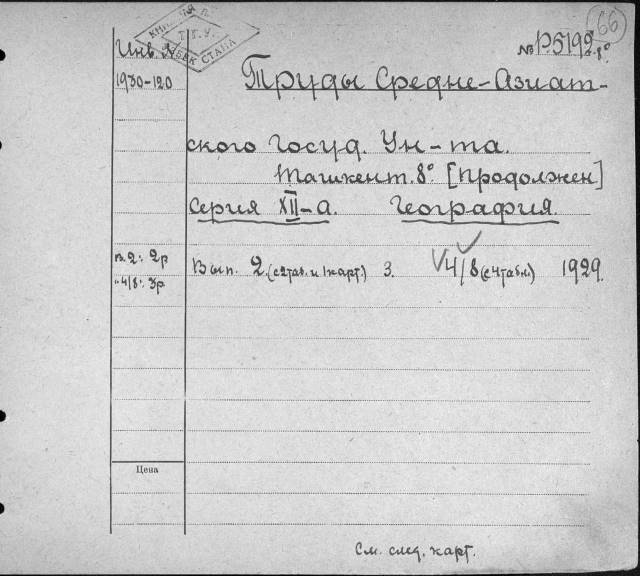 66
КНИЖНАЯ П
Т.Г.У.
БЕК СТАНА
Инв. №
1930-120
№ Р.5192 8°
Труды Средне-Азиат-
ского Госуд. Ун-та.
Ташкент. 8° [Продолжен]
Серия XII-а. География.
В. 2: 2р
"4/8": 3р.
Вып. 2.(с 2 таб. и 1 карт.) 3. √4/8 (с 4 табл.) 1929.
Цена
См. след. карт.